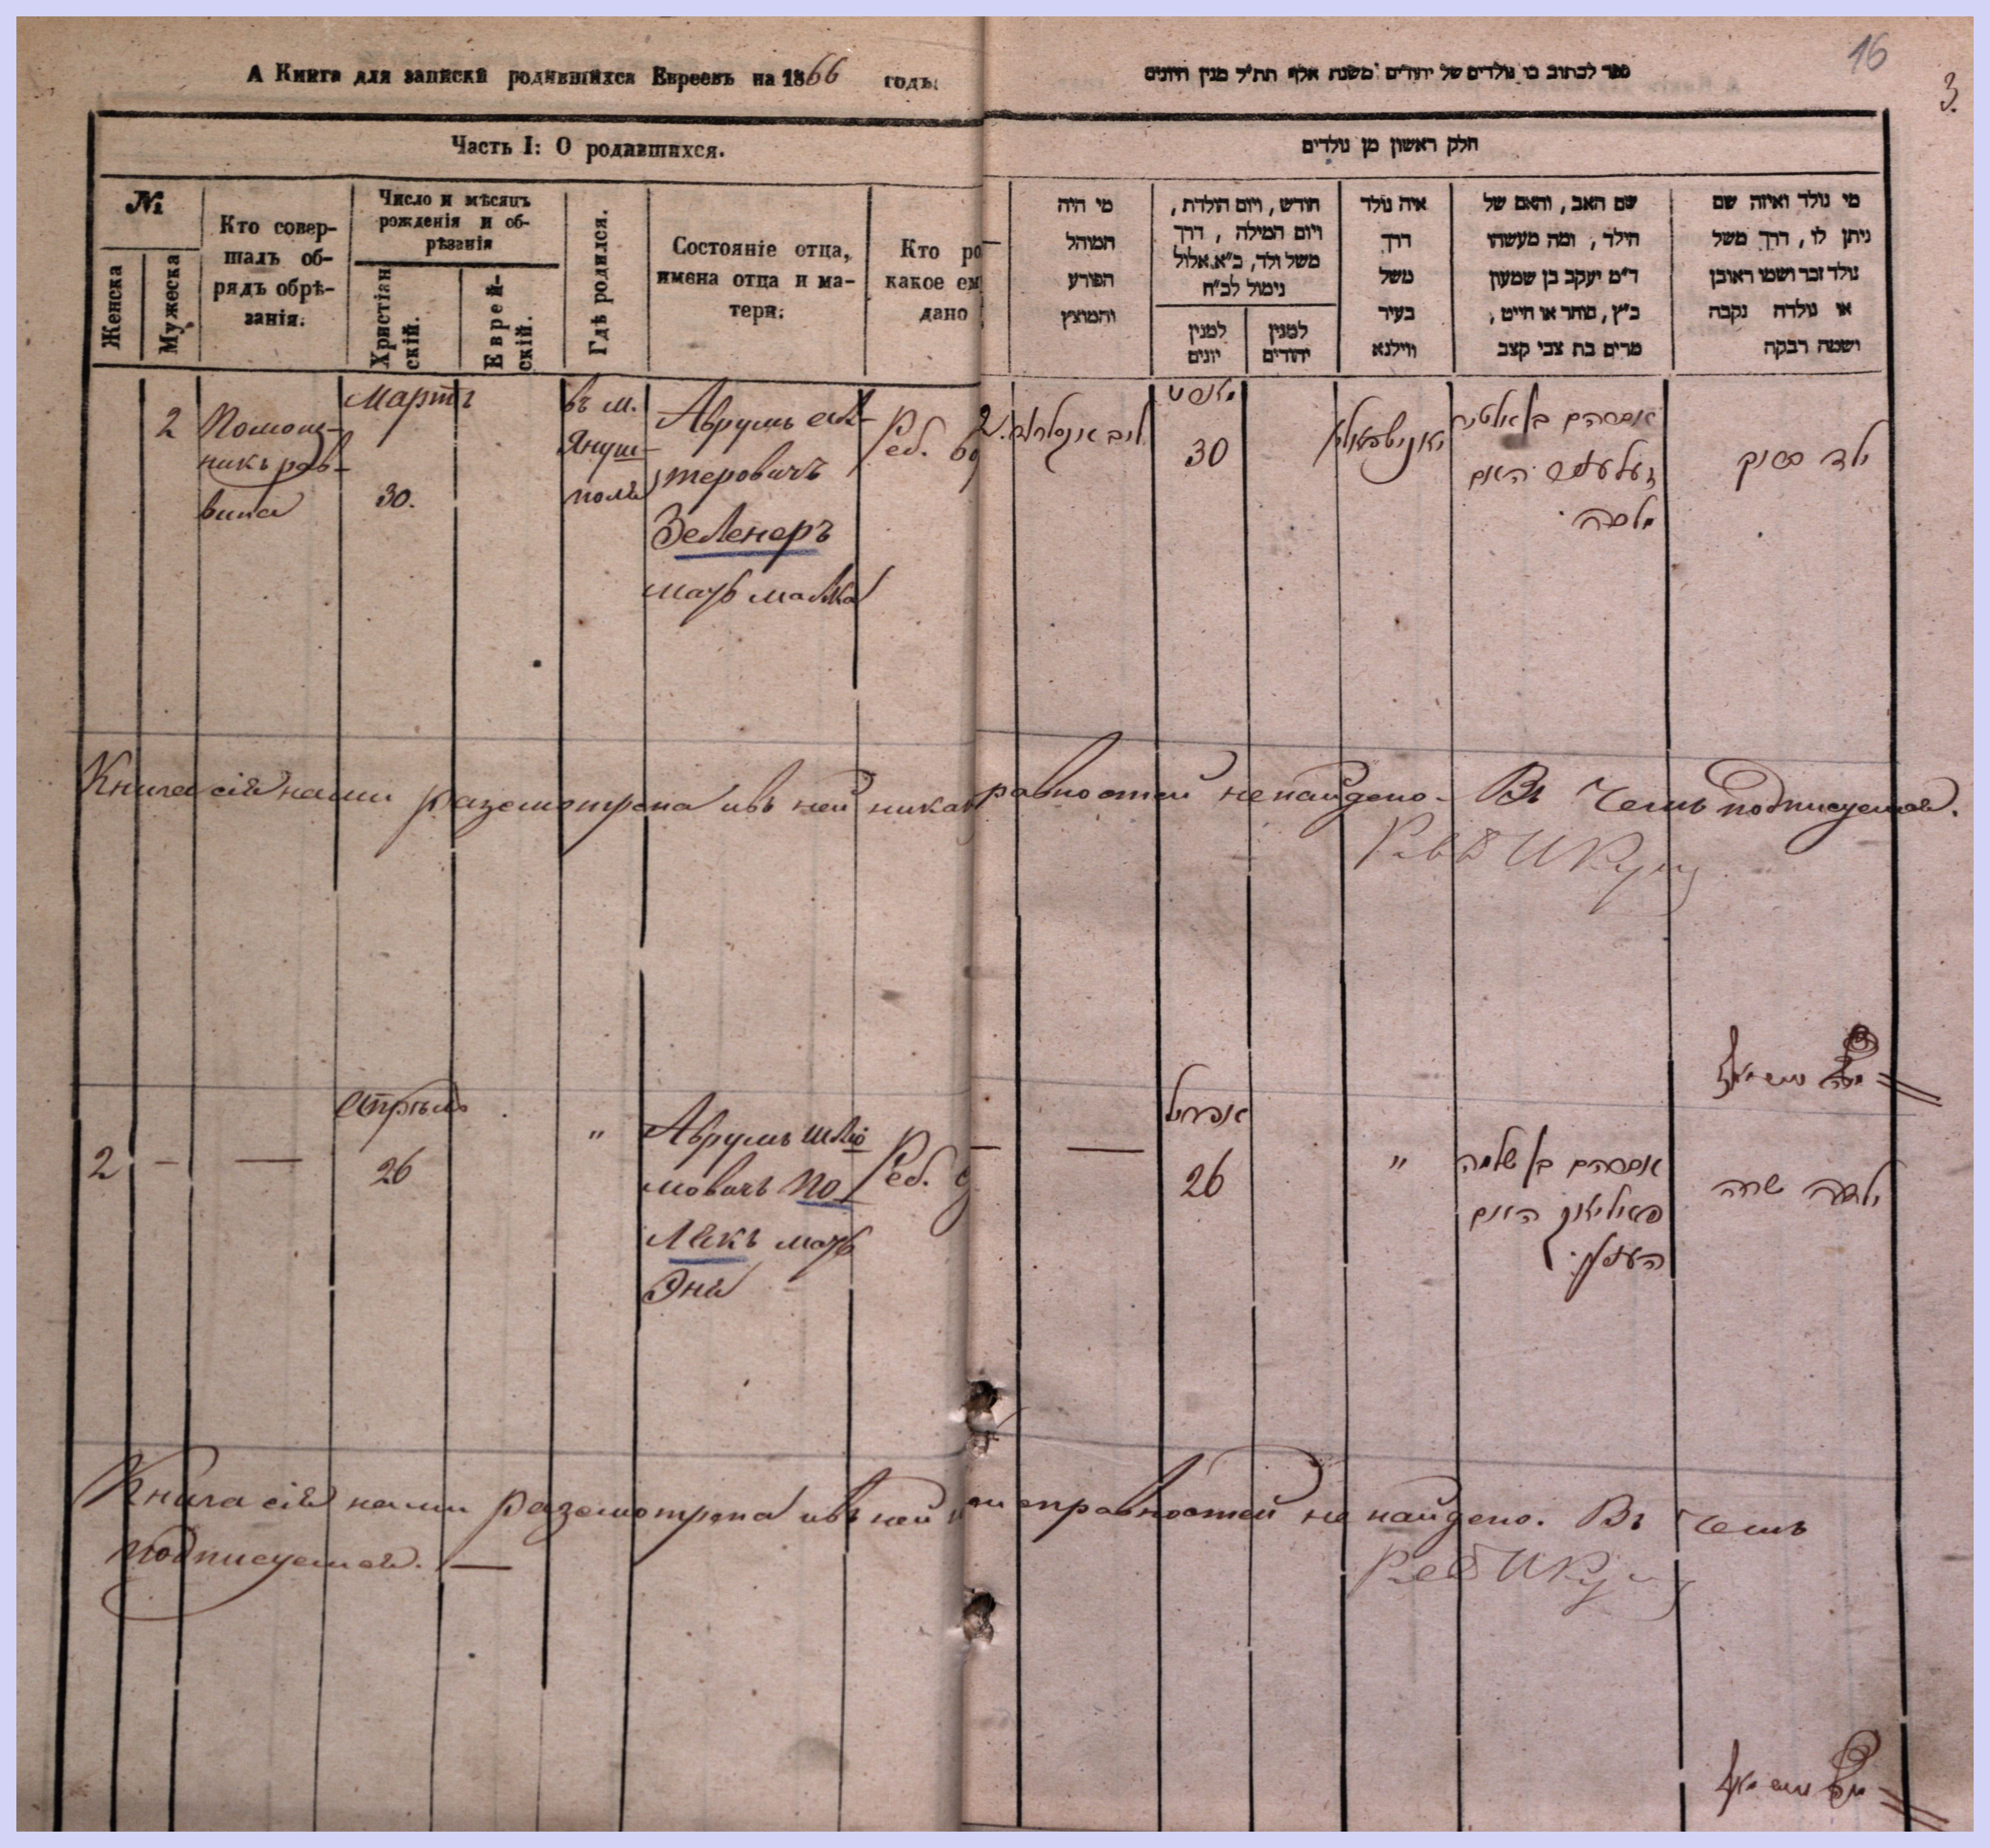 А Книга для записки родившихся Евреевъ на 1866 годъ.
ספר לכתוב בו נולדים של יהודים משנת אלף תת״ל מנין היונים
16
3.
Часть I: О родившихся.
חלק ראשון מן נולדים
№
Женска
Мужеска
Кто совер-
шалъ об-
рядъ обрѣ-
занія.
Число и мѣсяцъ
рожденія и об-
рѣзанія
Христіан
скій.
Еврей-
скій.
Гдѣ родился.
Состояніе отца,
имена отца и ма-
тери.
Кто ро
какое ем
дано
מי היה
המוהל
הפורע
והמוצץ
חודש, ויום הולדת,
ויום המילה, דרך
משל ולד, כ״א אלול
נימול לכ״ח
למנין
יונים
למנין
יהודים
איה נולד
דרך
משל
בעיר
ווילנא
שם האב, והאם של
הילד, ומה מעשהו
ד״מ יעקב בן שמעון
כ״ץ, סוחר או חייט,
מרים בת צבי קצב
מי נולד ואיזה שם
ניתן לו, דרך משל
נולד זכר ושמו ראובן
או נולדה נקבה
ושמה רבקה
2
Помощ-
никъ рав-
вина
Мартъ
30.
въ м.
Януш-
поль
Аврумъ
теровичъ
Зеленеръ
мать малка
Реб.
30
יאנישפאליא
אברהם בן
זעלענער האם
מלכה
ילד
Книга сія нами разсмотрена ивъ ней никак
равностей ненайдено. Въ чемъ подписуемся.
2
—
—
Апрѣль
26
"
Аврумъ шлио
мовичъ По
лякъ мать
Эня
Реб.
—
—
אפריל
26
"
אברהם בן שלמה
פאליאק האם
הענע
ילדה שרה
Книга сія нами разсмотрена ивъ ней
исправностей не найдено. Въ чемъ
подписуемся. —